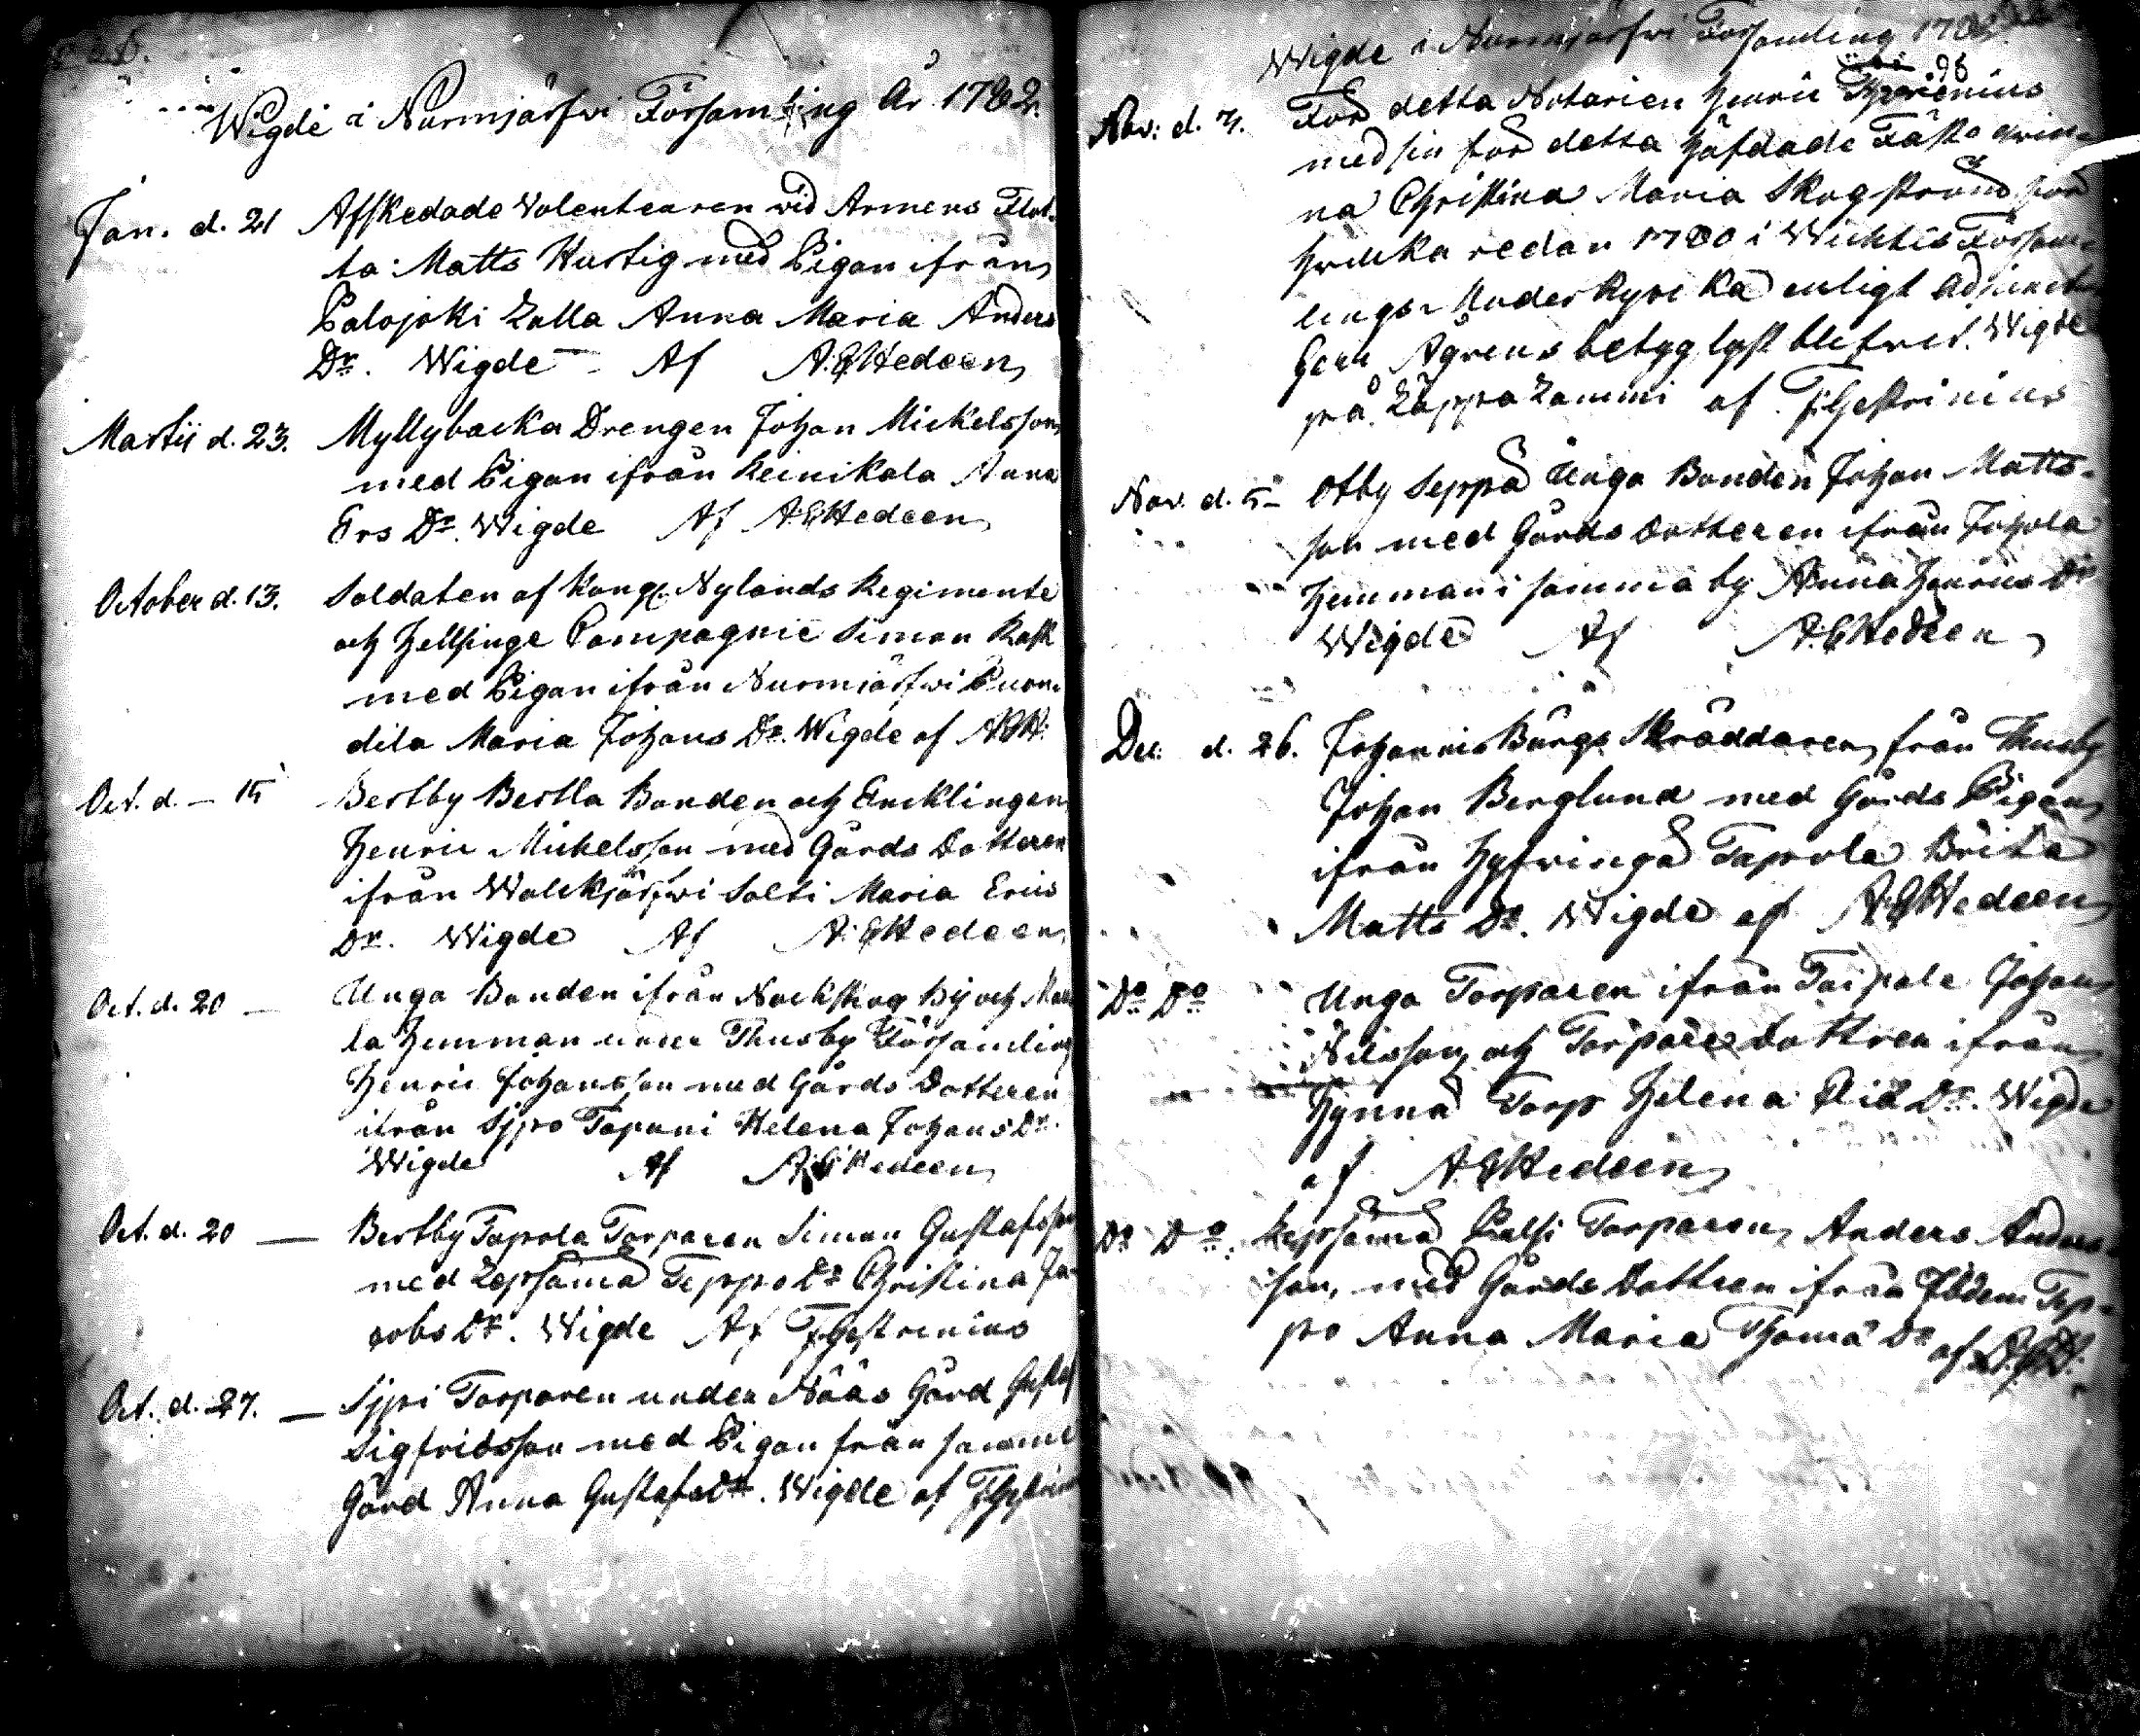 Wigde i Nurmjärfwi Församling År 1782.
Jan. d. 21 Afskedade Volentearen wid Armens Flot-
ta Matts Hurtig med Pigan ifrån
Palojoki Zalla Anna Maria Anders
Dr. Wigde Af A:EHedeen
Martii d. 23. Myllybacka Drengen Johan Mickelsson
med Pigan ifrån Reinikala Anna
Ers Dr. Wigde Af A:EHedeen
October d. 13. Soldaten af Kongl. Nylands Regimente
och Hellsinge Compagnie Simon Rask
med Pigan ifrån Nurmijärfwi Puon-
dila Maria Johans Dr. Wigde af AEH.
Oct. d. — 15 Bertby Bertla Bonden och Encklingen
Henric Mickelsson med Gårds Dotteren
ifrån Walckjärfwi Salti Maria Erics
Dr. Wigde Af A:EHedeen
Oct. d. 20 — Unga Bonden ifrån Nackskog By och
la Hemman under Thusby Församling
Henric Johansson med Gårds Dotteren
ifrån Sjpo Tapani Helena Johans Dr.
Wigde Af A:EHedeen
Oct. d. 20 — Bertby Tapola Torparen Simon Gustafsson
med Lepsämä Teppo Dr Christina Ja-
cobs Dr. Wigde Af FGestrinius
Oct. d. 27. — Sjpi Torparen under Nääs Gård Gustaf
Sigfridsson med Pigan från samme
Gård Anna Gustafs Dr. Wigde af
Wigde i Nurmijärfwi Församling 1782
96
Nov: d. 3. För detta Notarien Henric
med sin för detta häfdade Fäste qwin-
na Christina Maria Skogström för
hwilka redan 1780 i Wichtis Försam-
lings Moderkyrcka enligt
Herr Ågrens betyg lyst blifwit. Wigde
på Läppä Lammi af FGestrinius
Nov. d. 5 — Otby Seppä Unga Bonden Johan Matts-
son med Gårds Dotteren ifrån Johola
Hemman i samma by Anna Henrics Dr
Wigde Af A:EHedeen
Dec. d. 26. Johannis Bärgs Skräddaren från Thusby
Johan Berglund med Gårds Pigan
ifrån Hyfwingä Tapola Brita
Matts Dr. Wigde af A:EHedeen
Do Do Unga Torparen ifrån Taipale Johan
Nilsson och Torpare Dottren ifrån
Hynnä Torp Helena Dr. Wigde
af A:EHedeen
Do Do. Lepsämä Torparen Anders Anders-
son, med Gårds Dottren ifrån Ibidem Tep-
po Anna Maria Thomæ Dr af